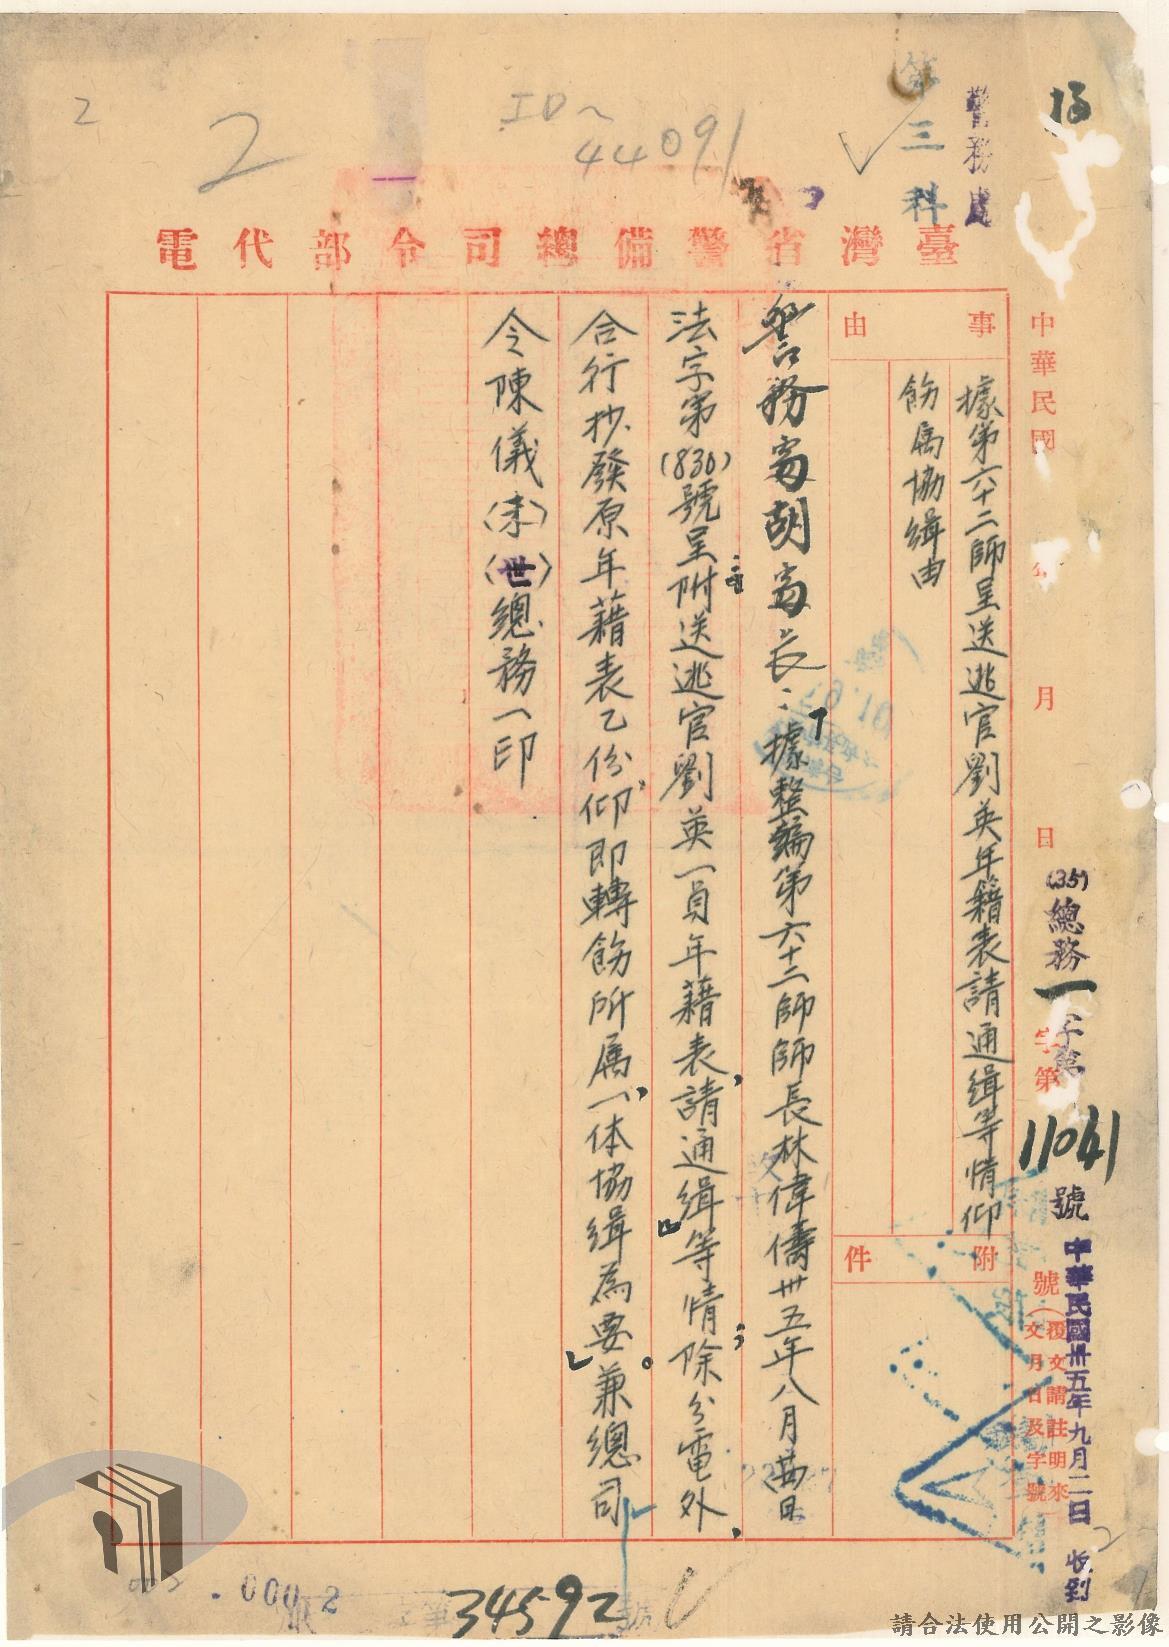 警務處
第三科
ID~
44091
2
2
臺灣省警備總司令部代電
中華民國 年 月 日
(35)總務一字第11041號
字第 號(覆文請註明來文月日及字號)
中華民國卅五年九月二日收到
事由
據第六十二師呈送逃官劉英年籍表請通緝等情仰
飭屬協緝由
附件
警務處胡處長:「據整編第六十二師師長林偉儔卅五年八月 日
法字第(830)號呈附送逃官劉英一員年藉表,請通緝」等情;除分電外,
合行抄發原年藉表乙份,仰即轉飭所屬,一体協緝為要。兼總司
令陳儀(未)(世)總務一印
0002
34592
請合法使用公開之影像